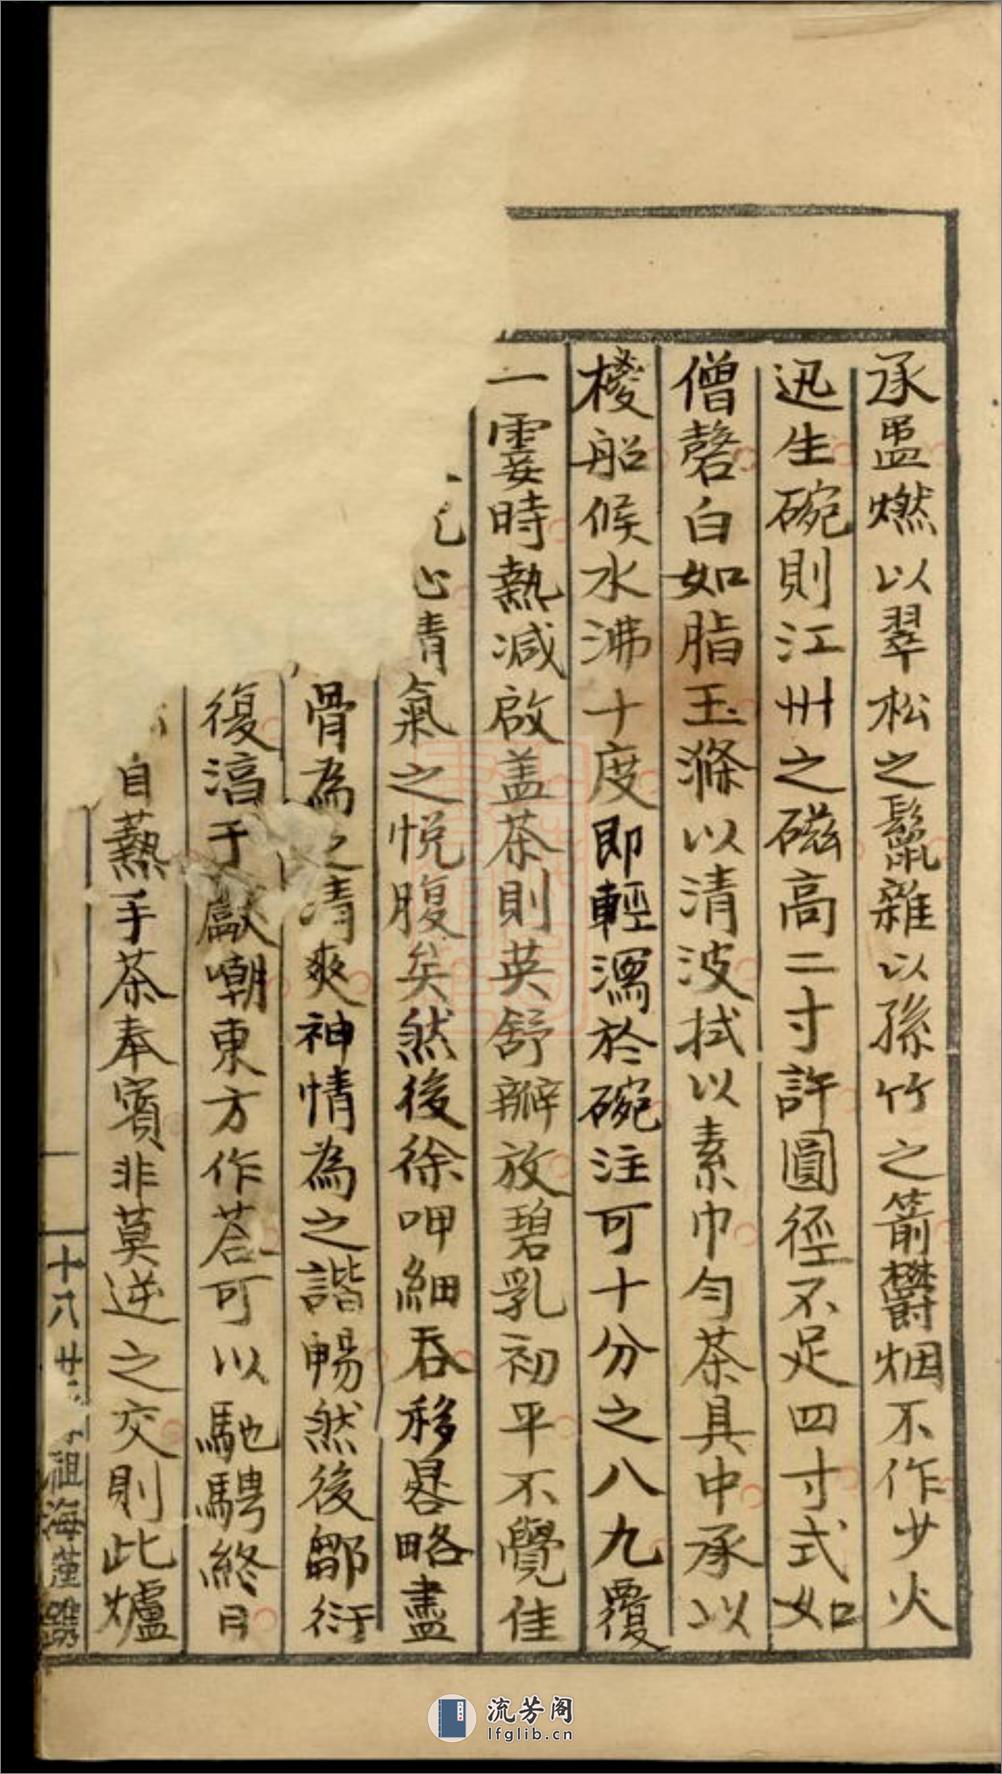 承盂燃以翠松之鬣雜以孫竹之箭鬱烟不作少火
迅生碗則江州之磁高二寸許圓徑不足四寸式如
僧磬白如脂玉滌以清波拭以素巾勻茶具中承以
椶船候水沸十度即輕瀉於碗注可十分之八九覆
一霎時熱減啟盖茶則英舒瓣放碧乳初平不覺佳
心清氣之悅腹矣然後徐呷細吞移晷略盡
骨為之清爽神情為之諧暢然後鄒衍
復滔于獻嘲東方作荅可以馳騁終日
自爇手茶奉賓非莫逆之交則此爐
十八
祖海
流芳阁
lfglib.cn